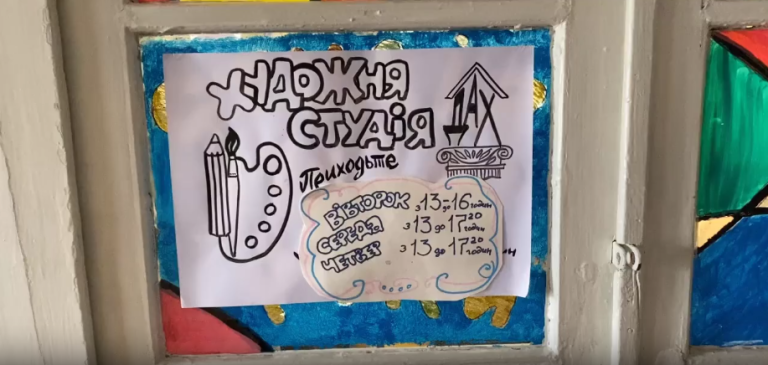 ХУДОЖНЯ
СТУДІЯ
ДАХ
Приходьте
ВІВТОРОК з 13 до 16 годин
СЕРЕДА з 13 до 17²⁰ годин
ЧЕТВЕР з 13 до 17²⁰ годин